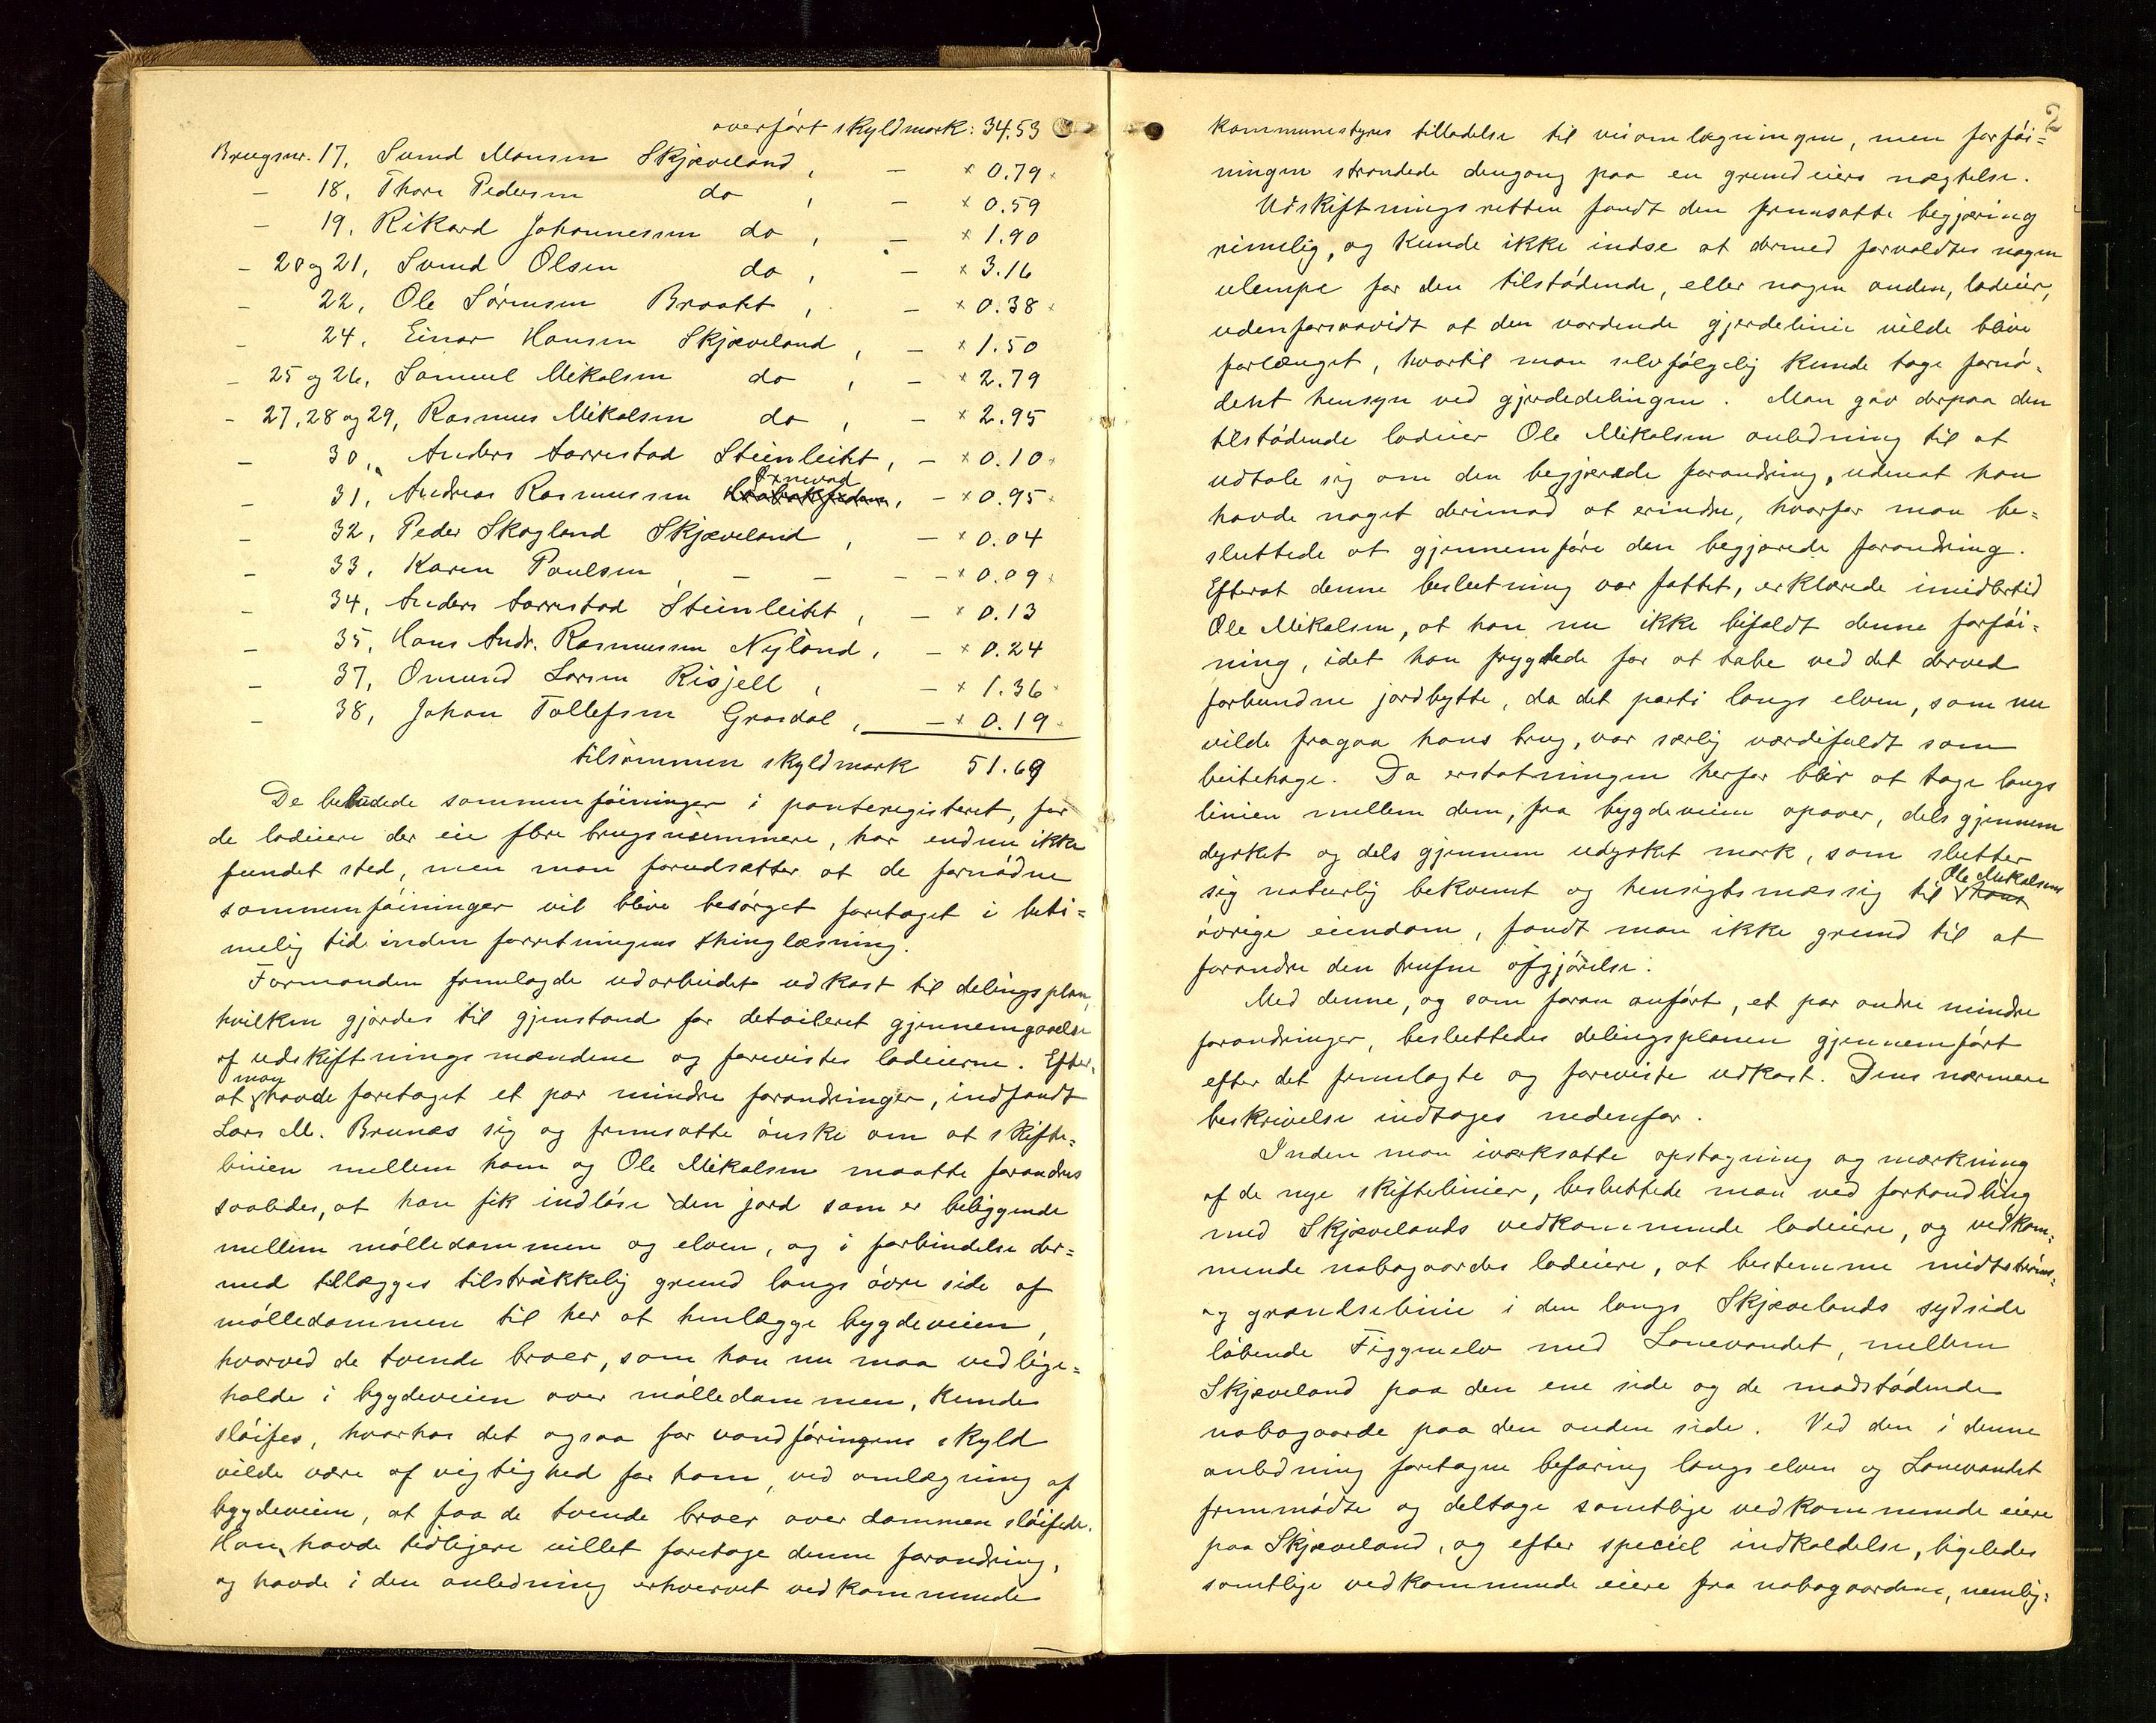 overført skyldmark: 34.53
Brugsnr. 17, Svend Monsen Skjæveland, — × 0.79
— 18, Thore Pedersen do , — × 0.59
— 19, Rikard Johannessen do , — × 1.90
— 20 og 21, Svend Olsen do , — × 3.16
— 22, Ole Sørensen Braatet , — × 0.38
— 24, Einar Hansen Skjæveland , — × 1.50
— 25 og 26, Samuel Mikalsen do , — × 2.79
— 27, 28 og 29, Rasmus Mikalsen do , — × 2.95
— 30, Anders Aarrestad Steinleitet, — × 0.10
— 31, Andreas Rasmussen , — × 0.95
— 32, Peder Skogland Skjæveland , — × 0.04
— 33, Karen Paulsen , — — — × 0.09
— 34, Anders Aarrestad Steinleitet , — × 0.13
— 35, Hans Andr. Rasmussen Nyland , — × 0.24
— 37, Omund Larsen Risjell , — × 1.36
— 38, Johan Tollefsen Grasdal , — × 0.19
tilsammen skyldmark 51.69
De bebudede sammenføininger i panteregisteret, for
de lodeiere der eie flere brugsnummere, har endnu ikke
fundet sted, men man forudsætter at de fornødne
sammenføininger vil blive besørget foretaget i beti=
melig tid inden forretningens thinglæsning.
Formanden fremlagde udarbeidet udkast til delingsplan,
hvilken gjordes til gjenstand for detaileret gjennemgaaelse
af udskiftningsmændene og forevistes lodeierne. Efter=
at man havde foretaget et par mindre forandringer, indfandt
Lars M. Brunæs sig og fremsatte ønske om at skifte=
linien mellem ham og Ole Mikalsen maatte forandres
saaledes, at han fik indløse den jord som er beliggende
mellem mølledammen og elven, og i forbindelse der=
med tillægges tilstrækkelig grund langs øvre side af
mølledammen til her at henlægge bygdeveien,
hvorved de tvende broer, som han nu maa vedlige=
holde i bygdeveien over mølledammen, kunde
sløifes, hvorhos det ogsaa for vandføringens skyld
vilde være af vigtighed for ham, ved omlægning af
bygdeveien, at faa de tvende broer over dammen sløifede.
Han havde tidligere villet foretage denne forandring,
og havde i den anledning erhvervet vedkommende
2
kommunestyres tilladelse til veiomlægningen, men forføi=
ningen strandede dengang paa en grundeiers nægtelse.
Udskiftningsretten fandt den fremsatte begjæring
rimelig, og kunde ikke indse at dermed forvoldtes nogen
ulempe for den tilstødende, eller nogen anden, lodeier,
udenforsaavidt at den vordende gjerdelinie vilde blive
forlænget, hvortil man selvfølgelig kunde tage fornø=
dent hensyn ved gjerdedelingen. Man gav derpaa den
tilstødende lodeier Ole Mikalsen anledning til at
udtale sig om den begjærede forandring, uden at han
havde noget derimod at erindre, hvorfor man be=
sluttede at gjennemføre den begjærede forandring.
Efterat denne beslutning var fattet, erklærede imidlertid
Ole Mikalsen, at han nu ikke bifaldt denne forføi=
ning, idet han frygtede for at tabe ved det derved
forbundne jordbytte, da det parti langs elven, som nu
vilde fragaa hans brug, var særlig værdifuldt som
beitehage. Da erstatningen herfor blir at tage langs
linien mellem dem, fra bygdeveien opover, dels gjennem
dyrket og dels gjennem udyrket mark, som slutter
sig naturlig bekvemt og hensigtsmæssig til hans Ole Mikalsens
øvrige eiendom, fandt man ikke grund til at
forandre den trufne afgjørelse.
Med denne, og som foran anført, et par andre mindre
forandringer, besluttedes delingsplanen gjennemført
efter det fremlagte og foreviste udkast. Dens nærmere
beskrivelse indtages nedenfor.
Inden man iværksatte opstagning og mærkning
af de nye skiftelinier, besluttede man ved forhandling
med Skjævelands vedkommende lodeiere, og vedkom=
mende nabogaardes lodeiere, at bestemme midtstrøms=
og grændselinie i den langs Skjævelands sydside
løbende Figgenelv med Lonevandet, mellem
Skjæveland paa den ene side og de modstødende
nabogaarde paa den anden side. Ved den i denne
anledning foretagne befaring langs elven og Lonevandet
fremmødte og deltoge samtlige vedkommende eiere
paa Skjæveland, og efter speciel indkaldelse, ligeledes
samtlige vedkommende eiere fra nabogaardene, nemlig: